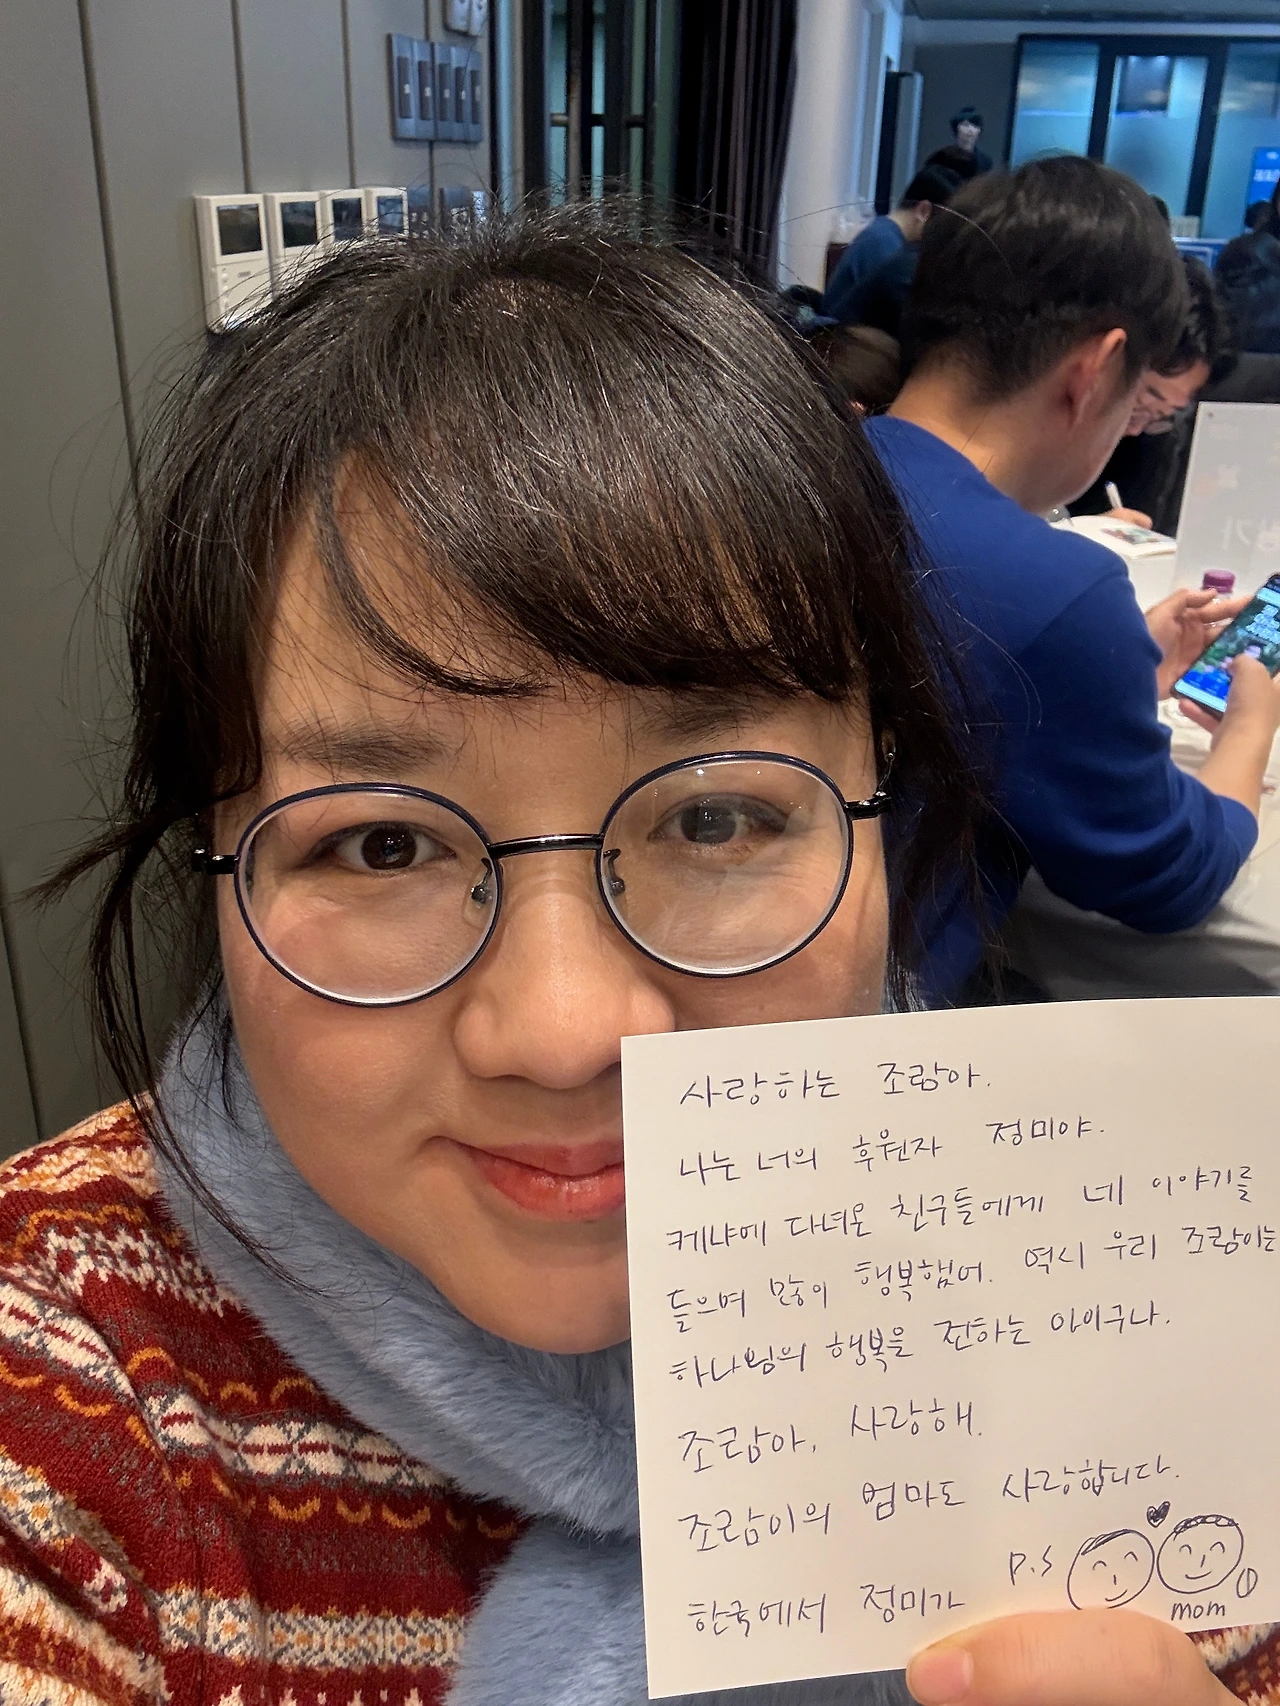 사랑하는 조람아.
나는 너의 후원자 정미야.
케냐에 다녀온 친구들에게 네 이야기를
들으며 많이 행복했어. 역시 우리 조람이는
하나님의 행복을 전하는 아이구나.
조람아, 사랑해.
조람이의 엄마도 사랑합니다.
한국에서 정미가
P.S
mom